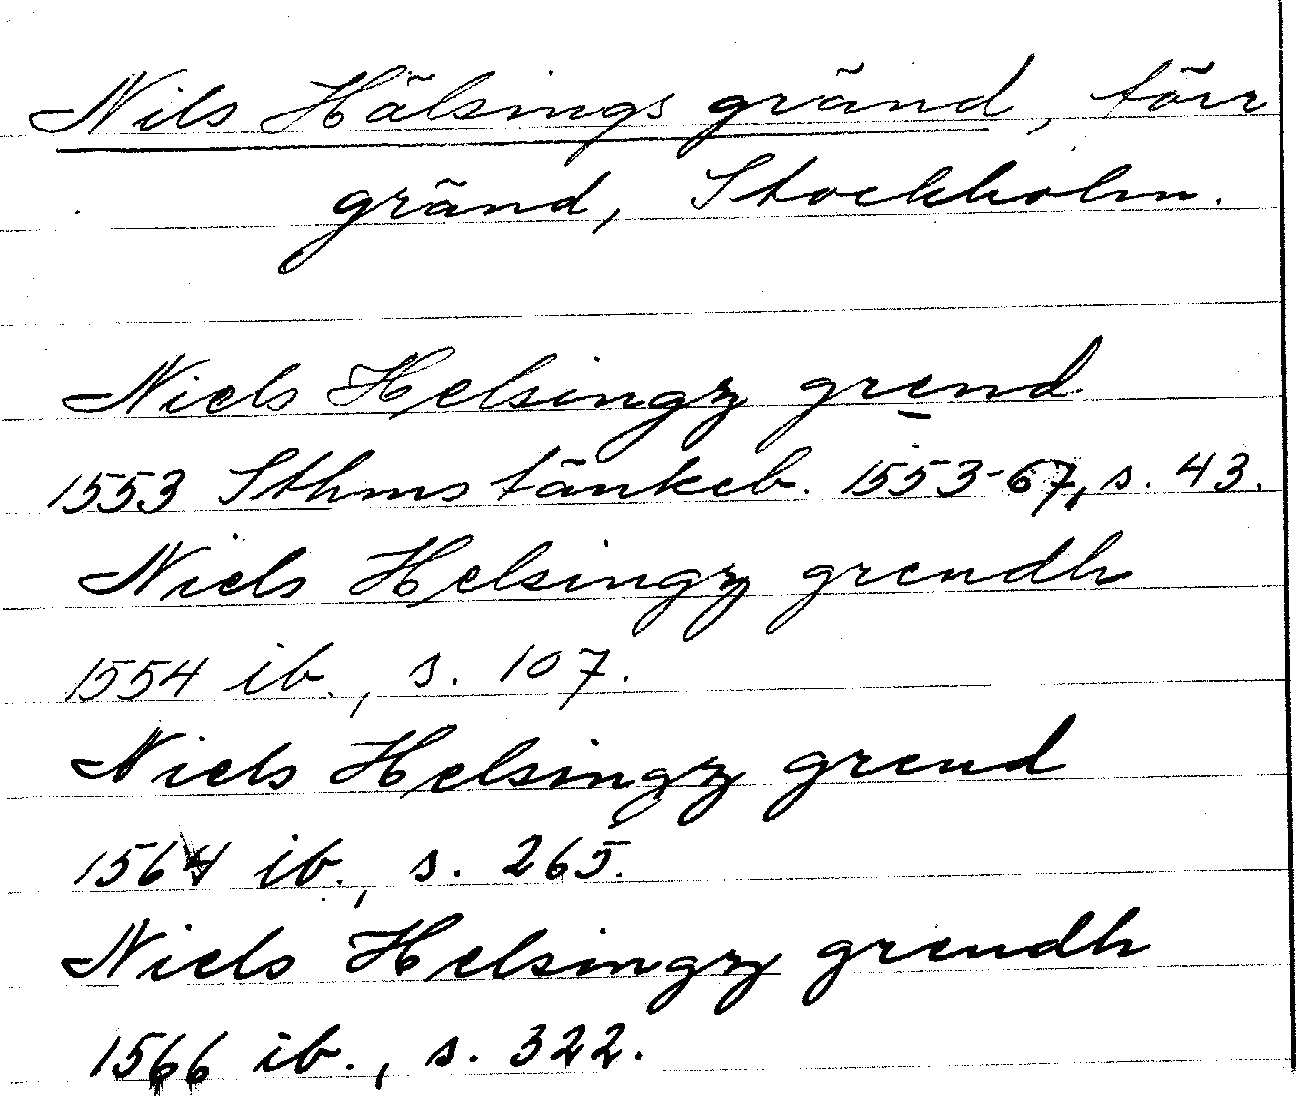 Nils Hälsings gränd, förr
gränd, Stockholm.
Niels Helsingz grend
1553 Sthms tänkeb. 1553-67, s. 43.
Niels Helsingz grendh
1554 ib., s. 107.
Niels Helsingz grend
1564 ib., s. 265.
Niels Helsingz grendh
1566 ib., s. 322.